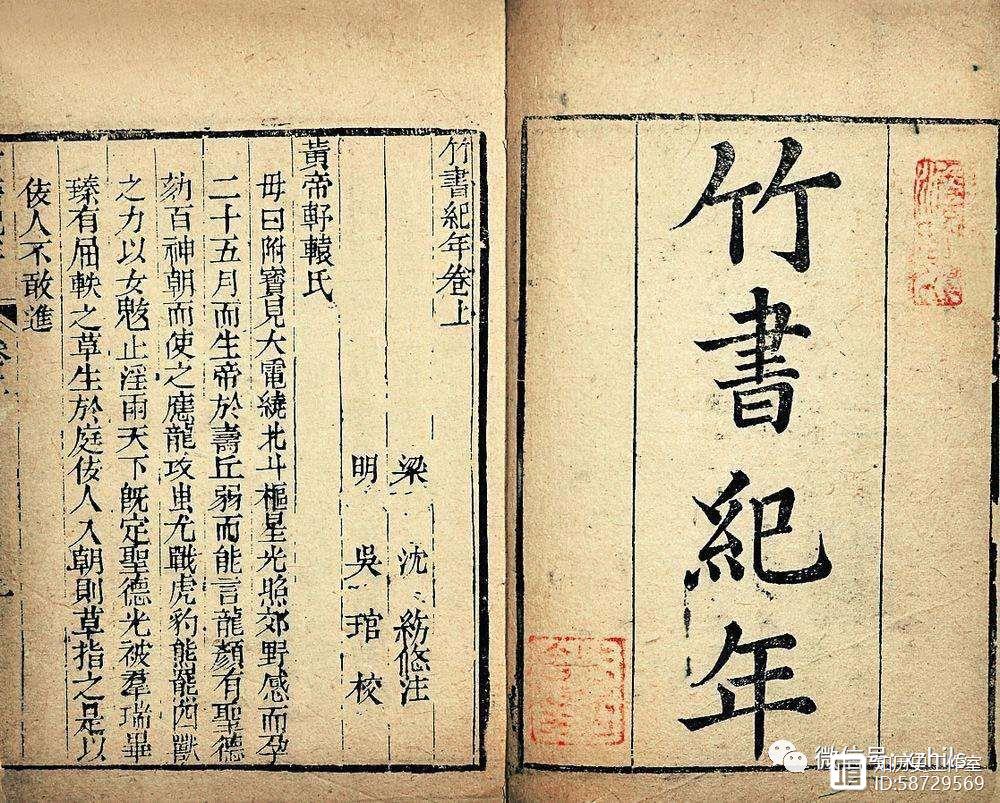 竹書紀年
竹書紀年卷上
梁 沈 紡悠注
明 吳 琯 校
黃帝軒轅氏
母曰附寶見大電繞北斗樞星光照郊野感而孕
二十五月而生帝於壽丘弱而能言龍顏有聖德
劾百神朝而使之應龍攻蚩尤戰虎豹熊羆四獸
之力以女魃止淫雨天下既定聖德光被羣瑞畢
臻有屈軼之草生於庭佞人入朝則草指之是以
佞人不敢進
微信号
ID:58729569